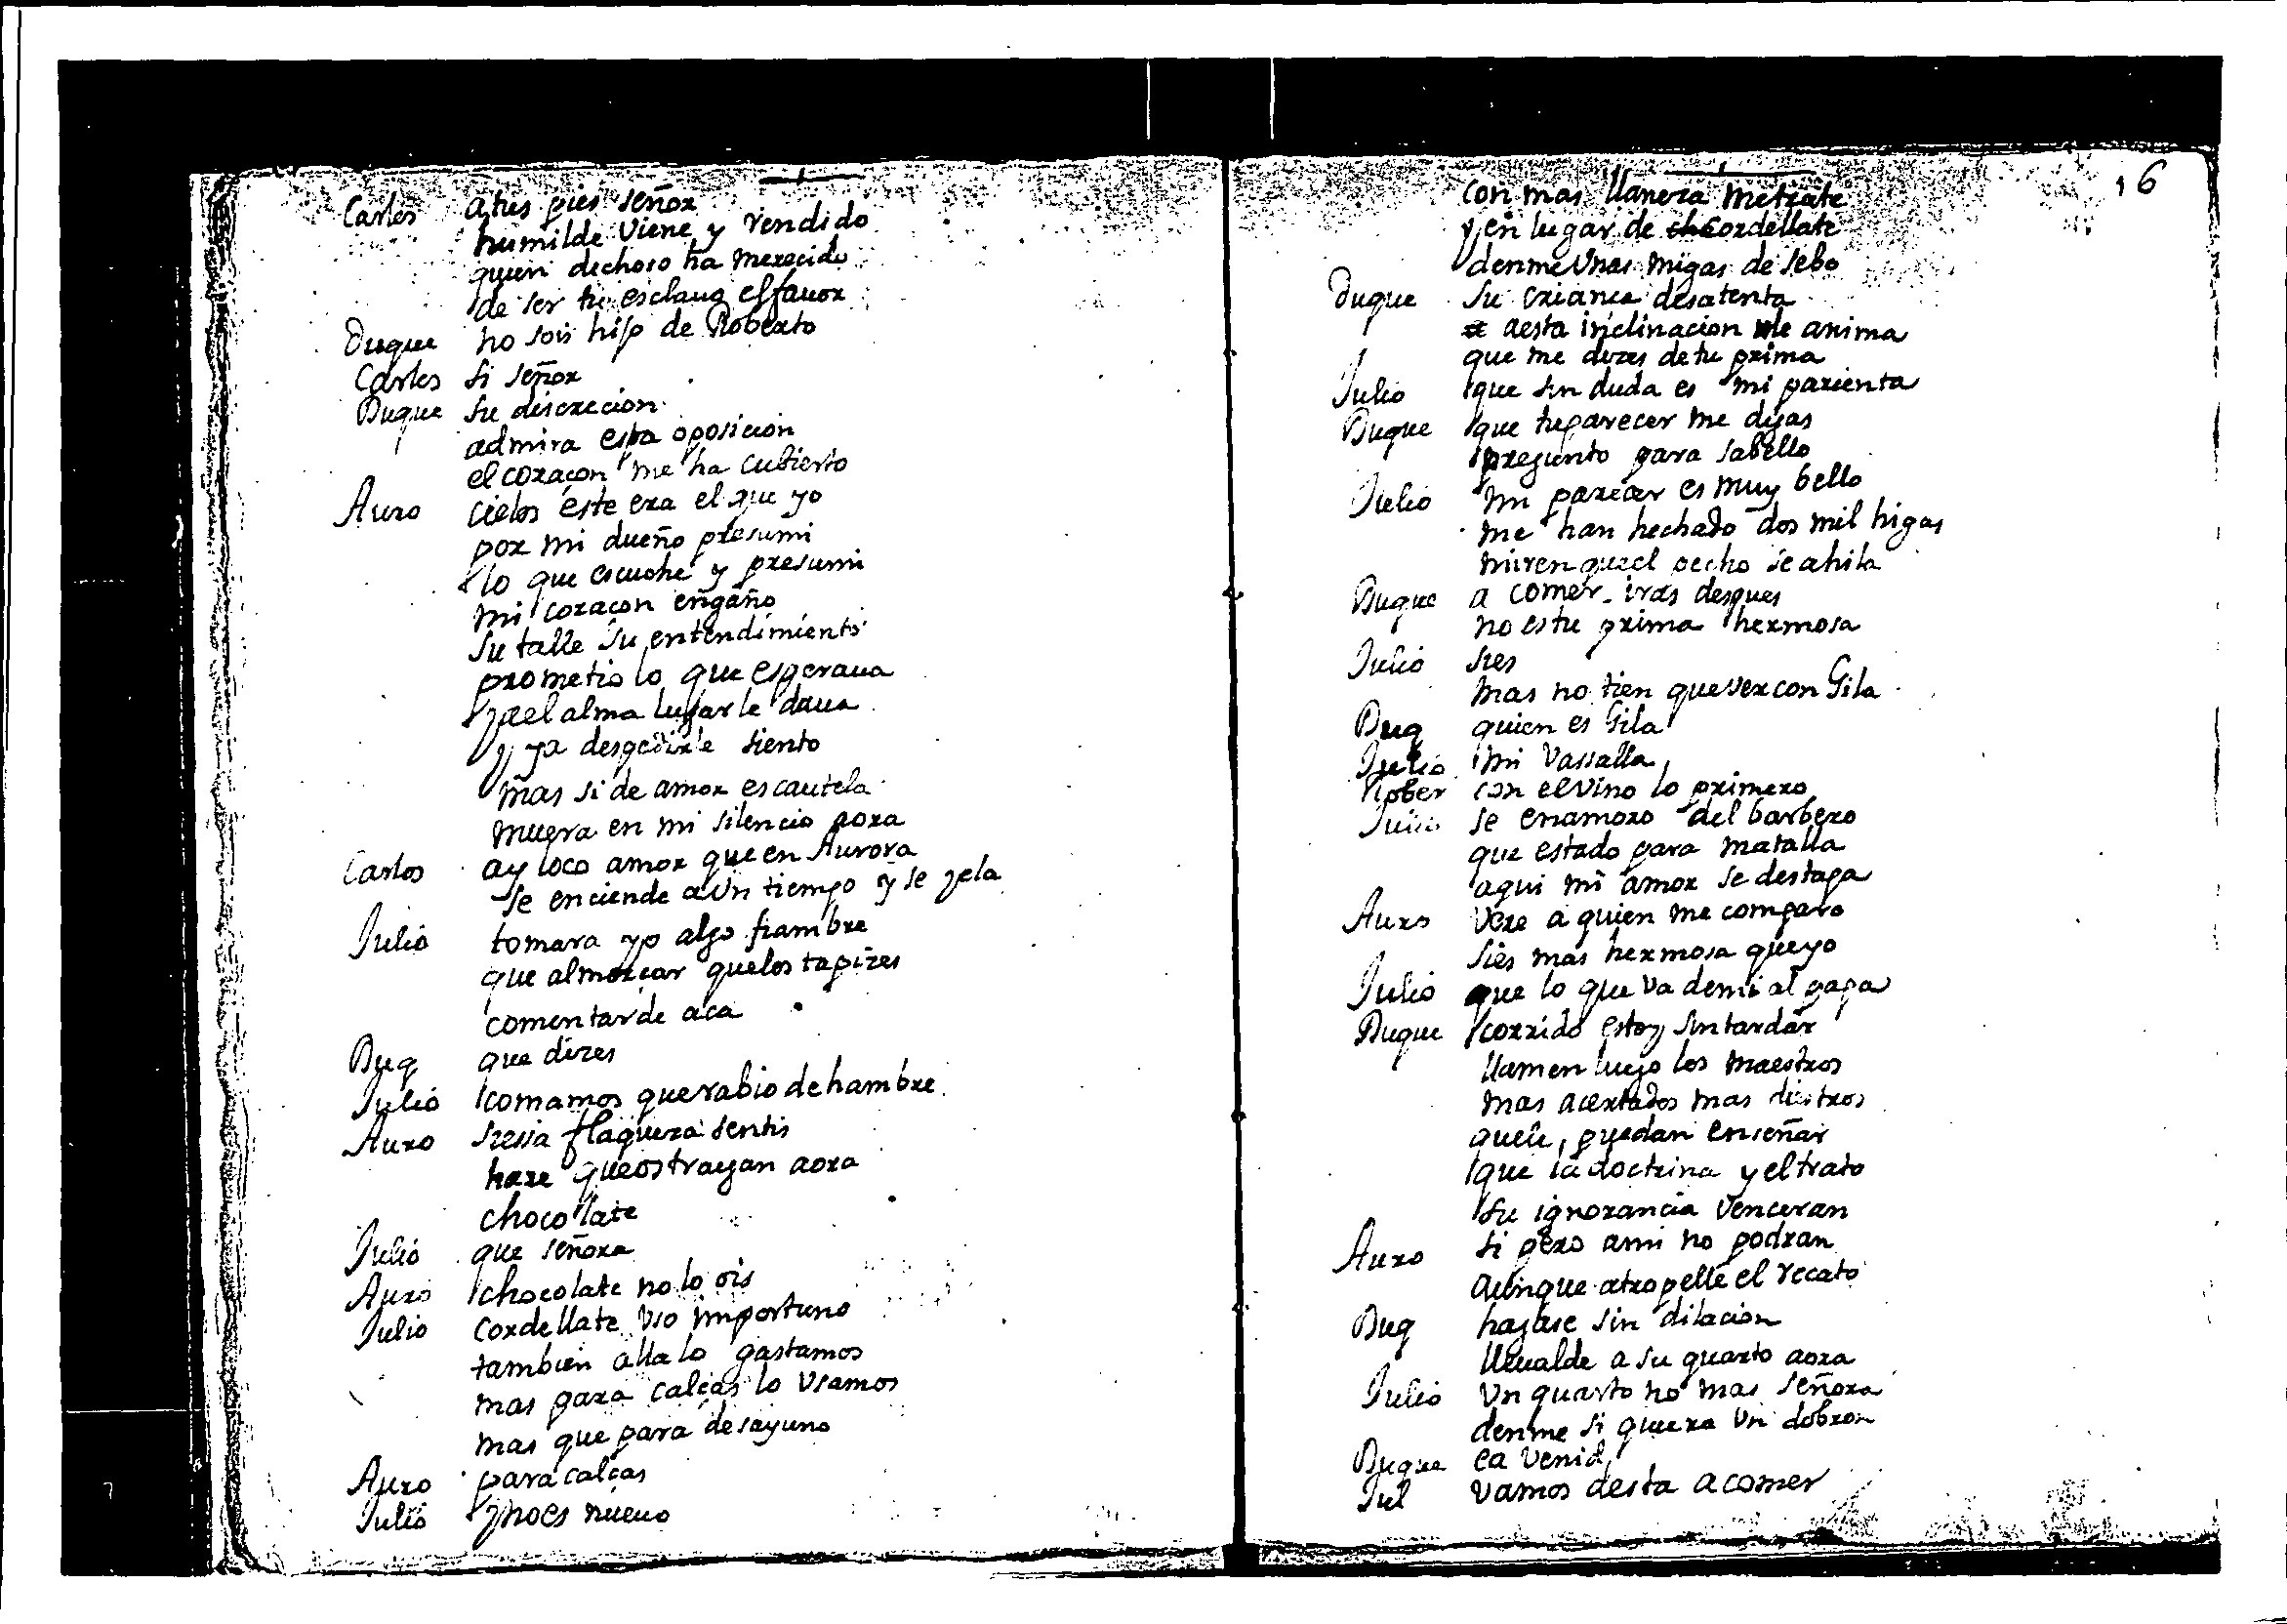 Carlos a tus pies señor
humilde viene y rendido
quien dichoso ha merecido
de ser tu esclauo el fauor
Duque no sois hijo de Roberto
Carlos si señor
Duque su discrecion
admira esta oposicion
el coraçon me ha cubierto
Auro cielos este era el que yo
por mi dueño presumi
lo que escuche y presumi
mi coraçon engaño
su talle su entendimiento
prometio lo que esperaua
y ael alma lugar le daua
y ya despedirle siento
mas si de amor es cautela
muera en mi silencio aora
Carlos ay loco amor que en Aurora
se enciende a un tiempo y se yela
Julio tomara yo algo fiambre
que almorçar que los tapizes
comentar de aca
Duq que dizes
Julio comamos que rabio de hambre
Auro si essa flaqueza sentis
hare que os traygan aora
chocolate
Julio que señora
Auro chocolate no lo ois
Julio cordellate vso importuno
tambien alla lo gastamos
mas para calças lo vsamos
mas que para desayuno
Auro para calças
Julio y no es nueuo
16
con mas llaneza metrate
y en lugar de cordellate
denme vnas migas de sebo
Duque su criança desatenta
aesta inclinacion le anima
que me dizes de tu prima
Julio que sin duda es mi parienta
Duque que tu parecer me digas
pregunto para sabello
Julio mi parecer es muy bello
me han hechado dos mil higas
miren que el pecho se ahila
Duque a comer iras despues
no es tu prima hermosa
Julio si es
mas no tien que ver con Gila
Duq quien es Gila
Julio mi vassalla
Rober con el vino lo primero
Julio se enamoro del barbero
que estado para matalla
aqui mi amor se destapa
Auro vere a quien me comparo
si es mas hermosa que yo
Julio que lo que va de mi al papa
Duque corrido estoy sin tardar
llamen luego los maestros
mas acertados mas diestros
que le puedan enseñar
que la doctrina y el trato
su ignorancia venceran
Auro si pero a mi no podran
aunque atropelle el recato
Duq hagase sin dilacion
lleualde a su quarto aora
Julio vn quarto no mas señora
denme si quiera vn dobron
Duque ea venid
Jul vamos desta a comer